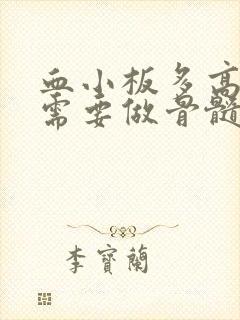 血小板多高
需要做骨髓
李寶蘭